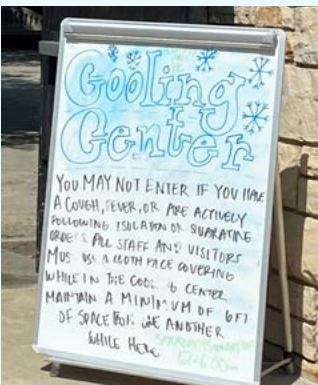 Cooling
Center
YOU MAY NOT ENTER IF YOU HAVE
A COUGH, FEVER, OR ARE ACTIVELY
FOLLOWING ISOLATION OR QUARATINE
ORDERS ALL STAFF AND VISITORS
MUS US A CLOTH FACE COVERING
WHILE IN THE COOL G CENTER
MAINTAIN A MINIMUM OF 6FT
OF SPACE ANOTHER
WHILE HERE
12-6:00